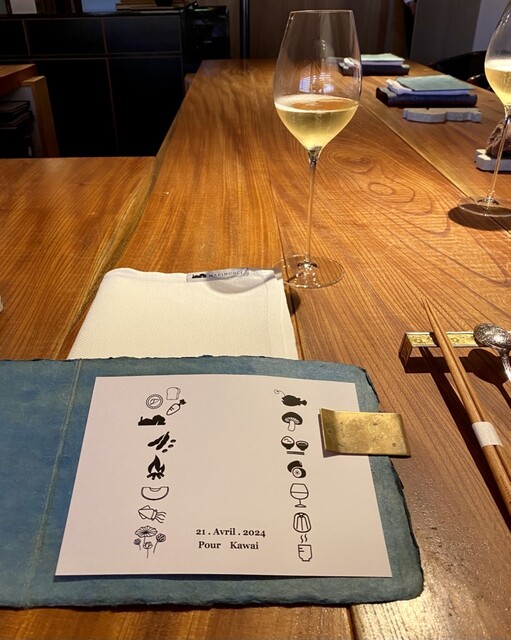 21 . Avril . 2024
Pour Kawai